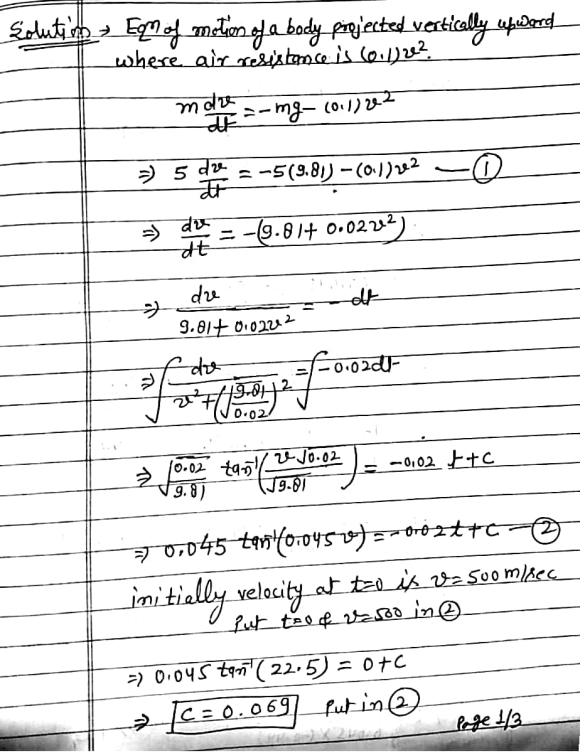 Solution → Eqn of motion of a body projected vertically upward
where air resistance is (0.1)v².
m dv/dt = -mg - (0.1)v²
⇒ 5 dv/dt = -5(9.81) - (0.1)v² — ①
⇒ dv/dt = -(9.81 + 0.02v²)
⇒ dv/(9.81 + 0.02v²) = - dt
⇒ ∫ dv/(v² + (√9.81/√0.02)²) = ∫ -0.02dt
⇒ √0.02/√9.81 tan⁻¹(v√0.02/√9.81) = -0.02 t + C
⇒ 0.045 tan⁻¹(0.045 v) = -0.02t + C — ②
initially velocity at t=0 is v = 500 m/sec
Put t=0 & v=500 in ②
⇒ 0.045 tan⁻¹(22.5) = 0 + C
⇒ C = 0.069 Put in ②
Page 1/3